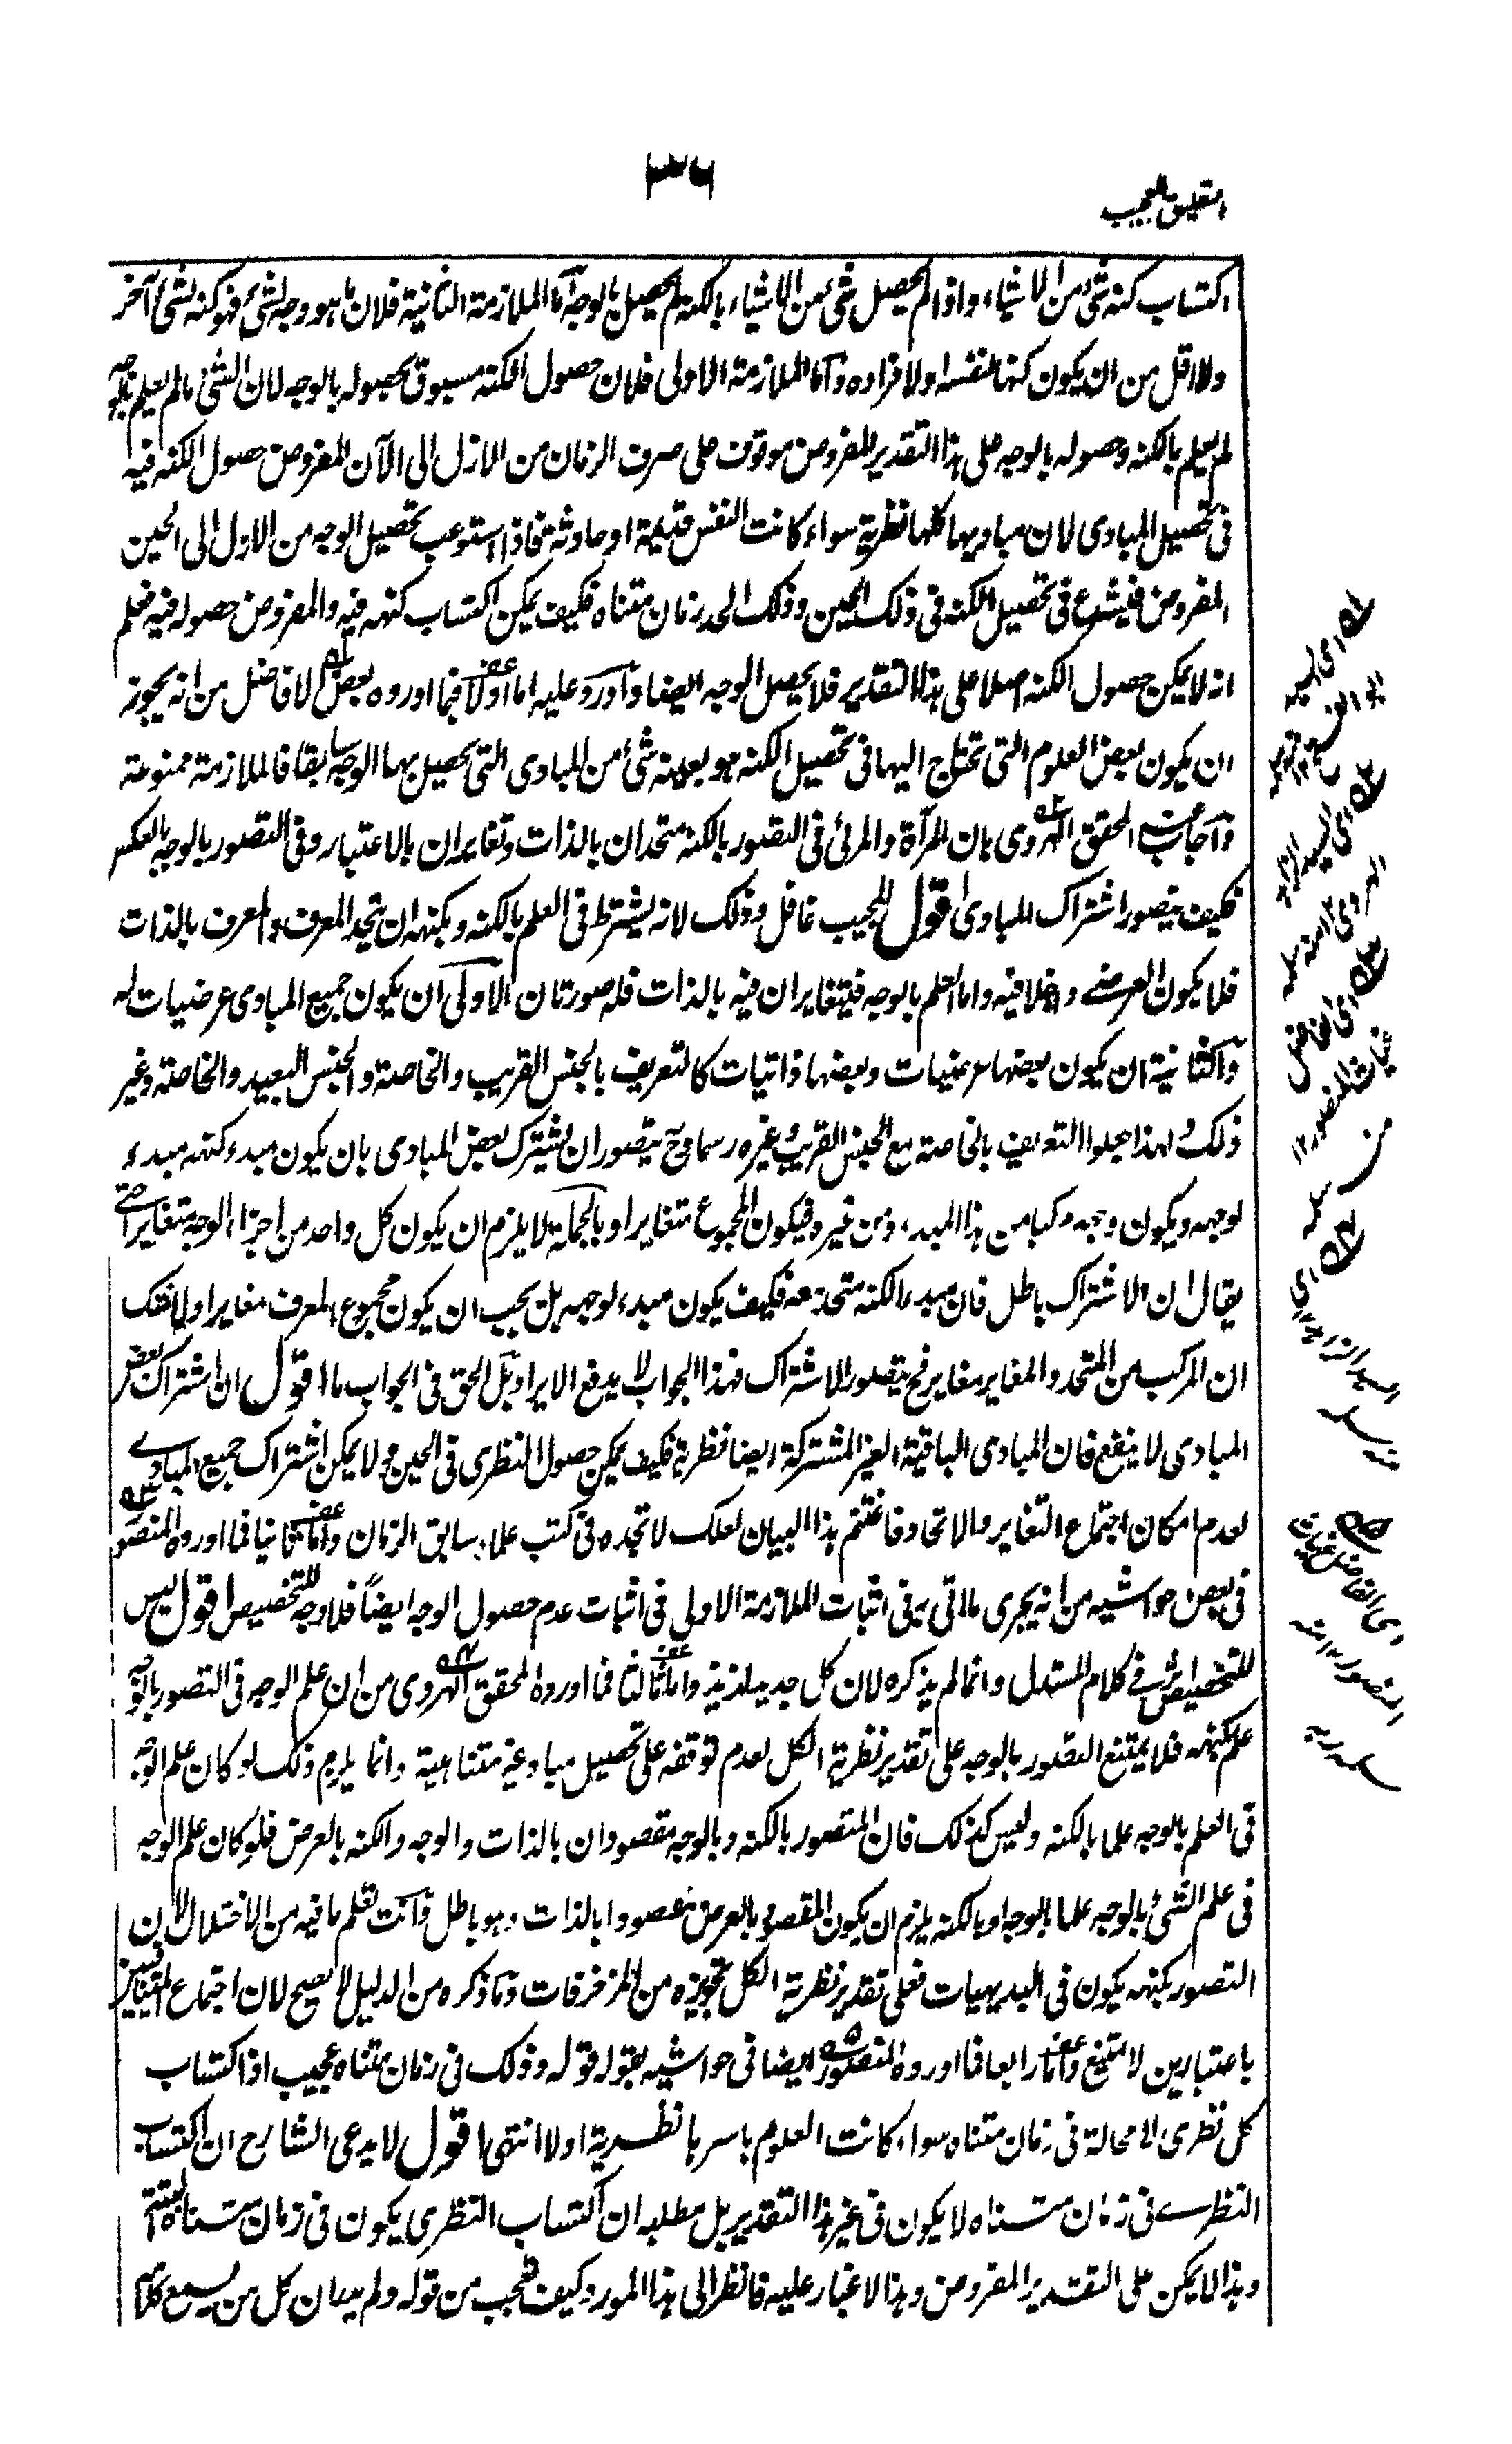 التعليق العجيب
٣٦
اكتساب كنه شئ من الاشياء واذا لم يحصل شئ من الاشياء بالكنه لم يحصل بالوجه اما الملازمة الثانية فلان ما هو وجه لشئ فهو كنه لشئ آخر
ولا اقل من ان يكون كنها لنفسه او لافراده واما الملازمة الاولى فلان حصول الكنه مسبوق بحصوله بالوجه لان الشئ ما لم يعلم بالوجه
لم يعلم بالكنه وحصوله بالوجه على هذا التقدير المفروض موقوف على صرف الزمان من الازل الى الآن المفروض حصول الكنه فيه
فى تحصيل المبادى لان مباديها كلها نظرية سواء كانت النفس قديمة او حادثة فاذا استوعب تحصيل الوجه من الازل الى الحين
المفروض فيشرع فى تحصيل الكنه فى ذلك الحين وذلك الحد زمان متناه فكيف يمكن اكتساب كنهه فيه والمفروض حصوله فيه فعلم
انه لا يمكن حصول الكنه اصلا على هذا التقدير فلا يحصل الوجه ايضا واورد عليه اما اولا فبما اورده بعض الافاضل من انه يجوز
ان يكون بعض العلوم التى تحتاج اليها فى تحصيل الكنه هو بعينه شئ من المبادى التى يحصل بها الوجه سابقا فالملازمة ممنوعة
واجاب عنه المحقق الهروى بان المرآة والمرئى فى التصور بالكنه متحدان بالذات وتغايران بالاعتبار وفى التصور بالوجه بالعكس
فكيف يتصور اشتراك المبادى اقول المجيب غافل وذلك لانه يشترط فى العلم بالكنه وبكنهه ان يتحد المعرف والمعرف بالذات
فلا يكون العرضى داخلا فيه واما العلم بالوجه فيتغايران فيه بالذات فله صورتان الاولى ان يكون جميع المبادى عرضيات له
والثانية ان يكون بعضها عرضيات وبعضها ذاتيات كالتعريف بالجنس القريب والخاصة والجنس البعيد والخاصة وغير
ذلك ولهذا جعلوا التعريف بالخاصة مع الجنس القريب وغيره رسما وح يتصور ان يشترك بعض المبادى بان يكون مبدء كنهه مبدء
لوجهه ويكون وجهه مركبا من هذا المبدء ومن غيره فيكون المجموع متغايرا وبالجملة لا يلزم ان يكون كل واحد من اجزاء الوجه متغايرا حتى
يقال ان الاشتراك باطل فان مبدء الكنه متحد معه فكيف يكون مبدء لوجهه بل يجب ان يكون مجموع المعرف مغايرا ولا شك
ان المركب من المتحد والمغاير مغاير فح يتصور الاشتراك فهذا الجواب لا يدفع الايراد بل الحق فى الجواب ما اقول ان اشتراك بعض
المبادى لا ينفع فان المبادى الباقية الغير المشتركة ايضا نظرية فكيف يمكن حصول النظرى فى الحين ولا يمكن اشتراك جميع المبادى
لعدم امكان اجتماع التغاير والاتحاد فاغتنم هذا البيان لعلك لا تجده فى كتب علماء سابق الزمان واما ثانيا فما اورده المنصور
فى بعض حواشيه من انه يجرى ما اتى به فى اثبات الملازمة الاولى فى اثبات عدم حصول الوجه ايضاً فلا وجه للتخصيص اقول ليس
للتخصيص اثر فى كلام المستدل وانما لم يذكره لان كل جديد لذيذ واما ثالثا فما اورده المحقق الهروى من ان علم الوجه فى التصور بالوجه
علم بكنهه فلا يمتنع التصور بالوجه على تقدير نظرية الكل لعدم توقفه على تحصيل مباد غير متناهية وانما يلزم ذلك لو كان علم الوجه
فى العلم بالوجه علما بالكنه وليس كذلك فان المتصور بالكنه وبالوجه مقصودان بالذات والوجه والكنه بالعرض فلو كان علم الوجه
فى علم الشئ بالوجه علما بالوجه او بالكنه يلزم ان يكون المقصود بالعرض مقصودا بالذات وهو باطل وانت تعلم ما فيه من الاختلال لان
التصور بكنهه يكون فى البديهيات فعلى تقدير نظرية الكل تجويزه من المزخرفات وما ذكره من الدليل لا يصح لان اجتماع المتنافيين
باعتبارين لا يمتنع واما رابعا فما اورده المنصور ايضا فى حواشيه بقوله قوله وذلك فى زمان متناه عجيب اذ اكتساب
كل نظرى لا محالة فى زمان متناه سواء كانت العلوم باسرها نظرية اولا انتهى اقول لا يدعى الشارح ان اكتساب
النظرى فى زمان متناه لا يكون فى غير هذا التقدير بل مطلبه ان اكتساب النظرى يكون فى زمان متناه البتة
وهذا لا يمكن على التقدير المفروض وهذا لا غبار عليه فانظر الى هذا المورد كيف تعجب من قوله ولم يدر ان كل من يسمع كلامه